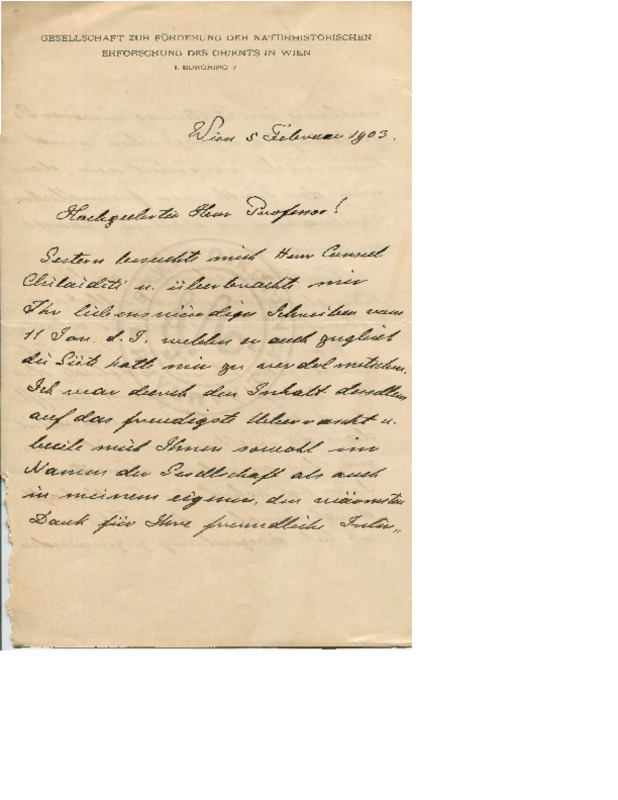 GESELLSCHAFT ZUR FÖRDERUNG DER NATURHISTORISCHEN
ERFORSCHUNG DES ORIENTS IN WIEN
I. BURGRING 7
Wien 5 Februar 1903.
Hochgeehrter Herr Professor!
Gestern besuchte mich Herr Consul
Chilaiditi u. überbrachte mir
Ihr liebenswürdiges Schreiben vom
11 Jan. d. J. welches er auch zugleich
die Güte hatte mir zu verdolmetschen.
Ich war durch den Inhalt desselben
auf das freudigste Ueberrascht u.
beeile mich Ihnen sowohl im
Namen der Gesellschaft als auch
in meinem eigenen, den wärmsten
Dank für Ihre freundliche Inter„